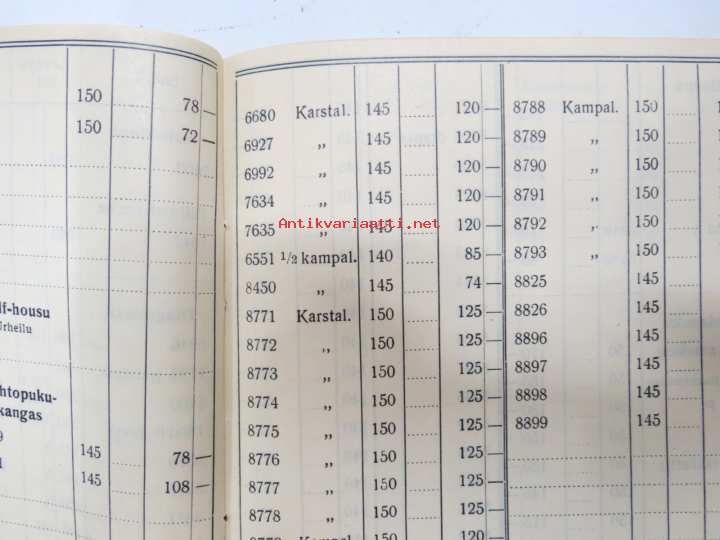 150 78 —
150 72 —
lf-housu
Urheilu
htopuku-
kangas
9
1 145 78 —
145 108 —
6680 Karstal. 145 120 —
6927 „ 145 120 —
6992 „ 145 120 —
7634 „ 145 120 —
7635 „ 145 120 —
6551 1/2 kampal. 140 85 —
8450 „ 145 74 —
8771 Karstal. 150 125 —
8772 „ 150 125 —
8773 „ 150 125 —
8774 „ 150 125 —
8775 „ 150 125 —
8776 „ 150 125 —
8777 „ 150 125 —
8778 „ 150 125 —
8788 Kampal. 150
8789 „ 150
8790 „ 150
8791 „ 150
8792 „ 150
8793 „ 150
8825 145
8826 145
8896 145
8897 145
8898 145
8399 145
Antikvariaatti.net